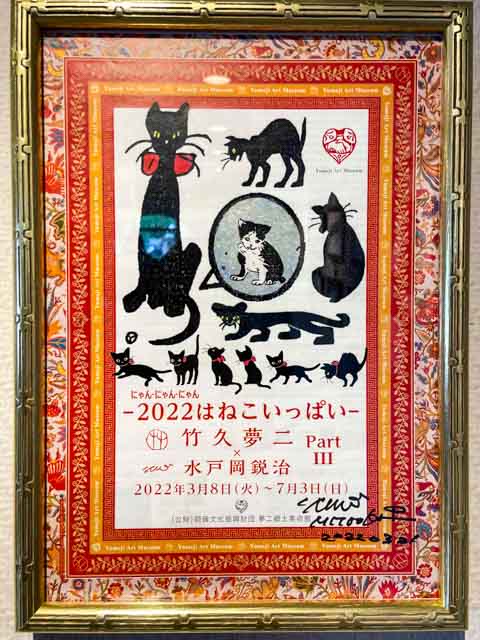 Yumeji Art Museum
Yumeji Art Museum
にゃん・にゃん・にゃん
-2022はねこいっぱい-
竹久夢二 Part III
×
水戸岡鋭治
2022年3月8日(火)~7月3日(日)
(公財)両備文化振興財団 夢二郷土美術館